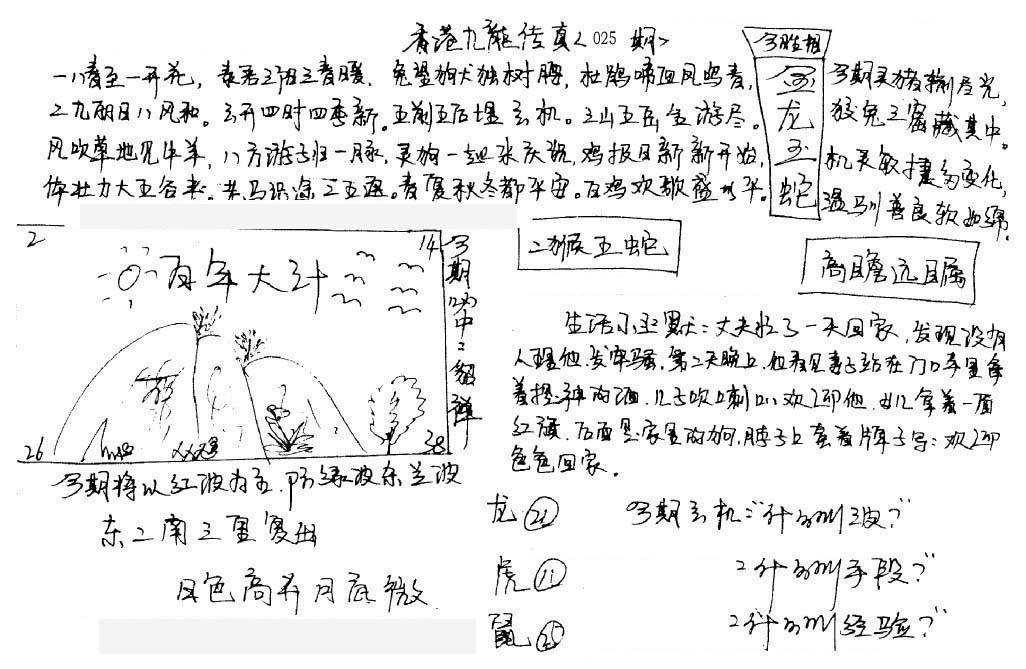 香港九龙传真<025期>
一八春至一开花，春君三阳三春暖，兔望狗犬独树腾，杜鹃啼血凤鸣春，
二九丽日八风和。云开四时四季新。五前五后埋玄机。三山五岳全游尽。
风吹草地见牛羊，八方游子归一脉，灵狗一起来庆祝，鸡报日新新开始，
体壮力大五谷来。老马识途二五强。春夏秋冬都平安。百鸡欢歌盛太平。
今期生相
龙
玉
蛇
今期灵猪输尽光，
狡兔三窟藏其中。
机灵敏捷多变化，
温驯善良软如绵。
二猴五蛇
高瞻远瞩
2
14
百年大计
26
38
今期必中：貂蝉
今期将以红波为主，防绿波东兰波
东二南三里复出
月色高齐月底微
生活小幽默：丈夫忙了一天回家，发现没有
人理他，发牢骚，第二天晚上，他看见妻子站在门口手里拿
着提神的酒，儿子吹喇叭欢迎他，女儿拿着一面
红旗，后面是家里的狗，脖子上套着牌子写：欢迎
爸爸回家。
龙 ㉑
虎 ⑪
鼠 ㉕
今期玄机："什么叫浪？"
"什么叫手段？"
"什么叫经验？"